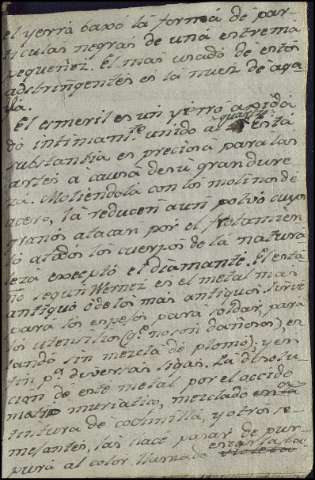 el yerro baxo la forma de par-
ticulas negras de una extrema
pequeñez. El mas usado de estos
adstringentes es la nuez de aga-
lla.
El esmeril es un yerro oxida
do intimamte. unido al quarzo: esta
substancia es preciosa para las
artes a causa de su grande dure
za. Moliendola con los molinos de
acero, la reducen a un polvo cuyos
granos atacan por el frotamien
to a todos los cuerpos de la natura
leza excepto el diamante. El esta
ño segun Werner es el metal mas
antiguo ó de los mas antiguos. Sirve
para los espejos, para soldar, para
los utensilios (qe. no son dañosos) es
tando sin mezcla de plomo, y en
fin pa. diversas ligas. La disolu
cion de este metal por el accido
muriatico, mezclado en la
tintura de cochinilla, y otros se
mejantes, las hace pasar de pur
pura al color llamado escarlata
violeta